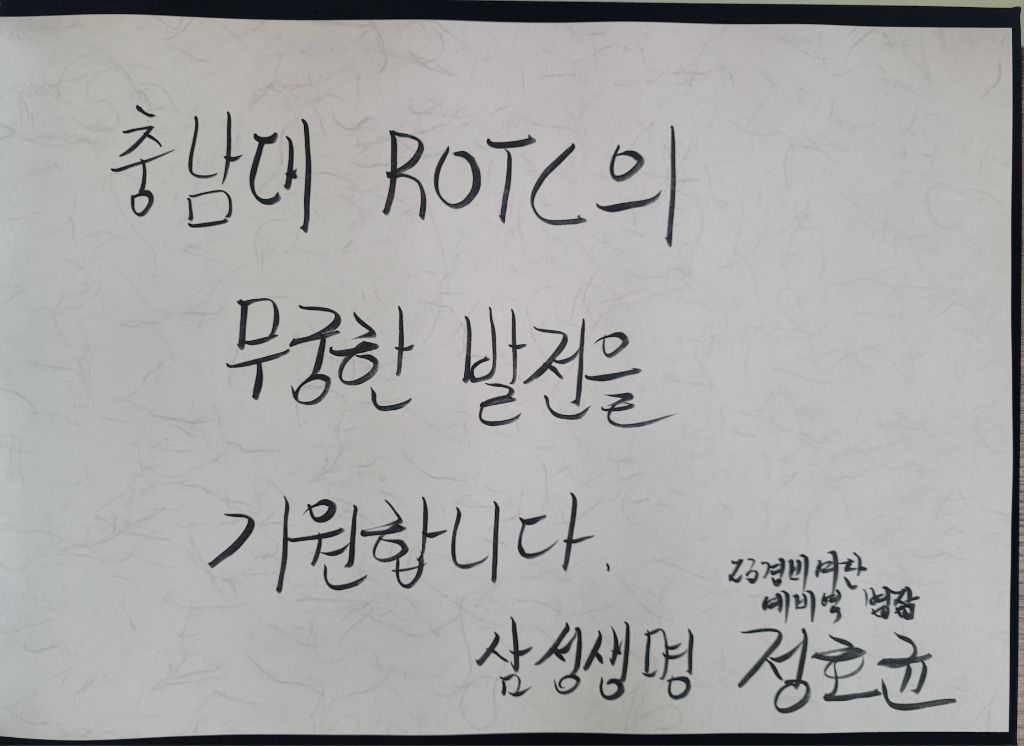 충남대 ROTC의
무궁한 발전을
기원합니다.
23경비여단
예비역 병장
삼성생명 정호균